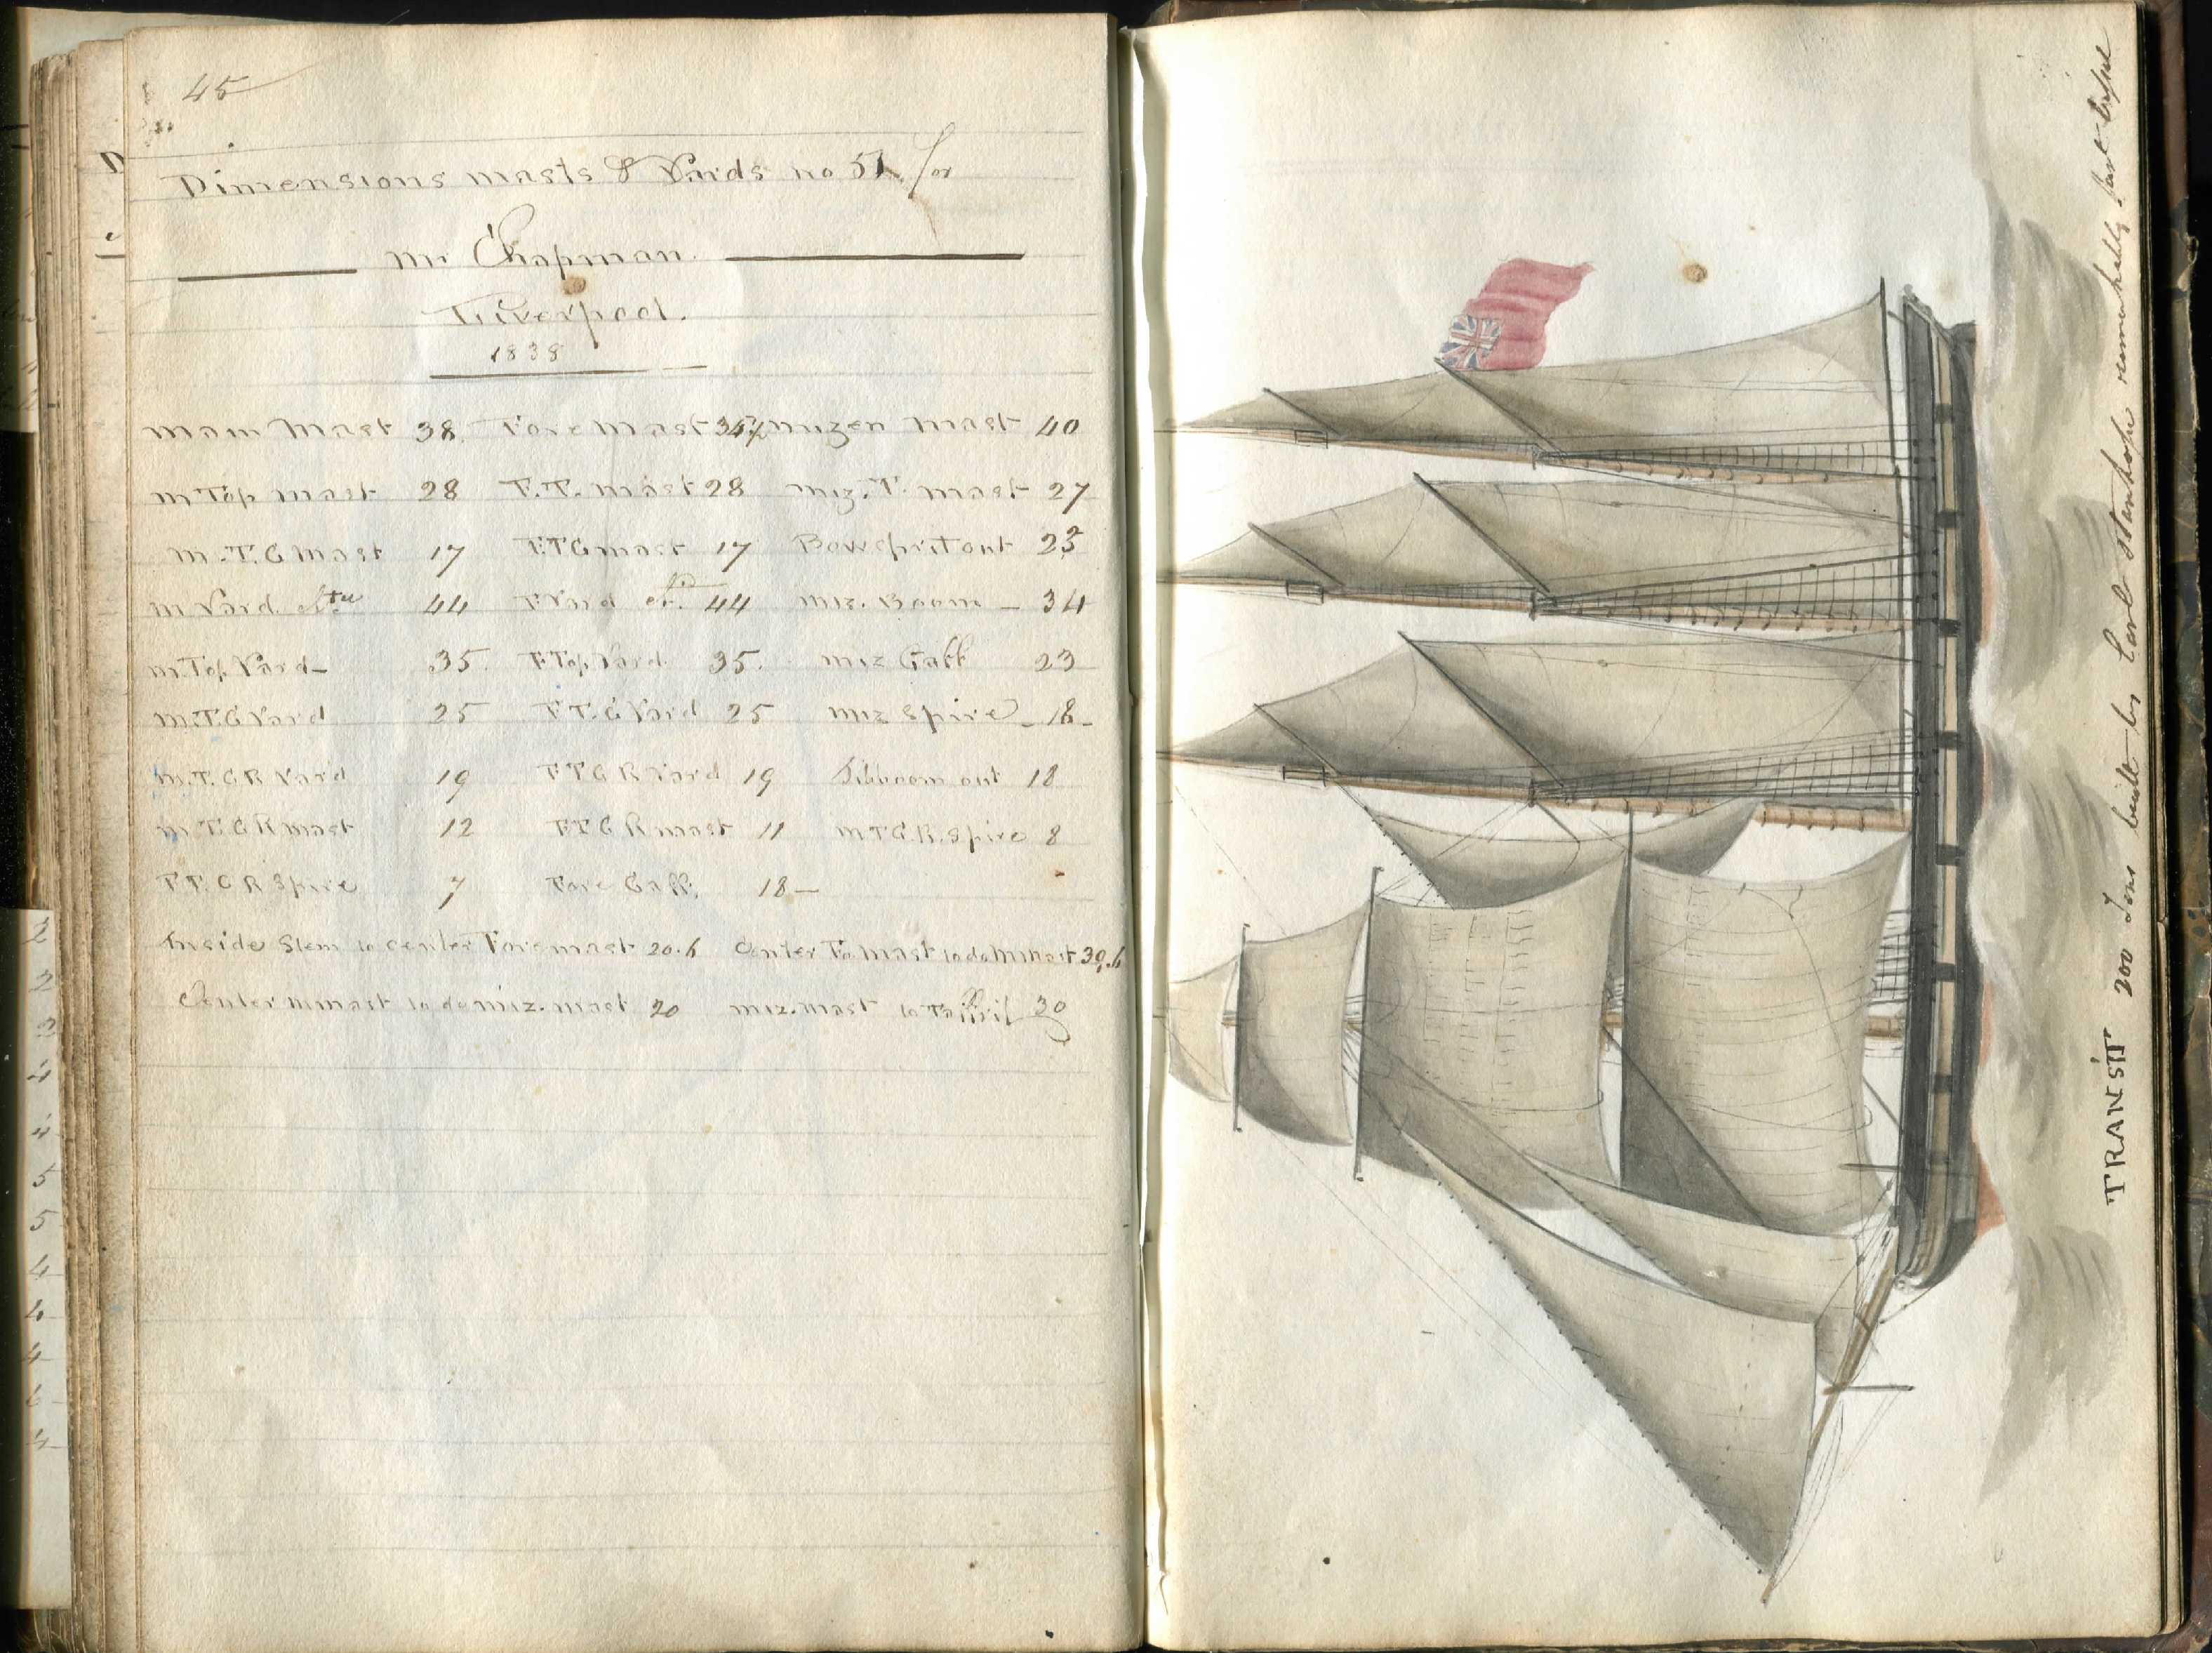 45
Dimensions masts & Yards no 51 for
mr Chapman.
Liverpool.
1838
main Mast 38. Fore Mast 34½ mizen Mast 40
m Top mast 28 F.T. mast 28 miz. T. mast 27
m.T.G Mast 17 F.T G mast 17 Bowsprit out 23
m Yard 44 F Yard 44 miz. Boom - 34
m.Top Yard - 35. F Top Yard 35. miz Gaff 23
m.T.G Yard 25 F T.G Yard 25 miz Spire - 18 -
m.T.G R Yard 19 F T G R Yard 19 Jibboom out 18
m T.G R mast 12 F T G R mast 11 m T G.R. Spire 8
F T. G R Spire 7 Fore Gaff. 18 -
Inside Stem to center Foremast 20.6 Center Fo mast to do M mast 30.6
Center m mast to do miz. mast 20 miz. mast to Taffril 30
TRANSIT 200 Tons built by Earl Stanhope remarkably fast Vessel
2
2
3
4
4
5
5
4
6
4
6
4